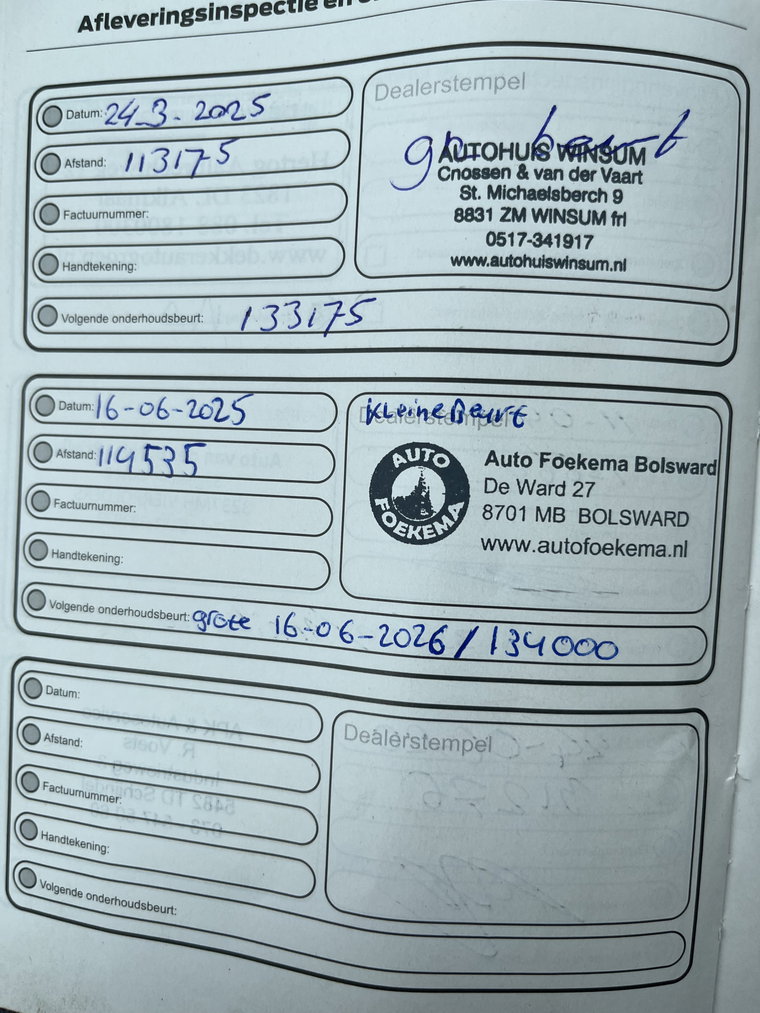 Afleveringsinspectie en
Datum: 24-3-2025
Afstand: 113175
Factuurnummer:
Handtekening:
Volgende onderhoudsbeurt: 133175
Dealerstempel
gr beurt
AUTOHUIS WINSUM
Cnossen & van der Vaart
St. Michaelsberch 9
8831 ZM WINSUM frl
0517-341917
www.autohuiswinsum.nl
Datum: 16-06-2025
Afstand: 114535
Factuurnummer:
Handtekening:
Volgende onderhoudsbeurt: grote 16-06-2026 / 134000
Dealerstempel
kleine Beurt
AUTO FOEKEMA
Auto Foekema Bolsward
De Ward 27
8701 MB BOLSWARD
www.autofoekema.nl
Datum:
Afstand:
Factuurnummer:
Handtekening:
Volgende onderhoudsbeurt:
Dealerstempel